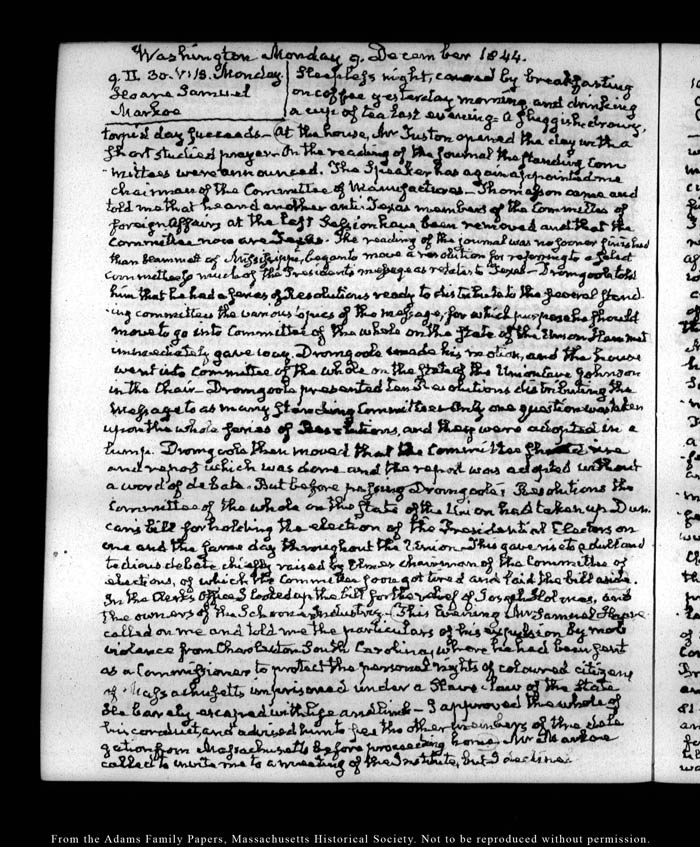 Washington Monday 9. December 1844.
9. II. 30. V:15. Monday
Hoare Samuel
Markoe
Sleepless night, caused by breakfasting
on coffee yesterday morning, and drinking
a cup of tea last evening = A sluggish drowsy,
torpid day succeeds – At the house, Mr Tuston opened the day with a
short studied prayer – On the reading of the Journal the standing Com
-mittees were announced. The Speaker has again appointed me
chairman of the Committee of Manufactures – Thomasson came and
told me that he and another anti-Texas members of the Committee of
foreign Affairs at the last Session have been removed and that the
Committee now are Texas. The reading of the journal was no sooner finished
than Hammet of Mississippi, began to move a resolution for referring to a select
committee so much of the Presidents message as relates to Texas – Dromgoole told
him that he had a series of Resolutions ready to distribute to the several stand-
-ing committees the various topics of the message, for which purpose he should
move to go into Committee of the whole on the state of the Union Hammet
immediately gave way. Dromgoole made his motion, and the house
went into Committee of the whole on the state of the Union Cave Johnson
in the Chair – Dromgoole presented ten Resolutions distributing the
Message to as many standing Committees Only one question was taken
upon the whole series of Resolutions, and they were adopted in a
lump. Dromgoole then moved that the Committee should rise
and report which was done and the report was adopted without
a word of debate. But before passing Dromgoole's Resolutions the
Committee of the whole on the state of the Union had taken up Dun-
can's bill for holding the election of the Presidential Electors on
one and the same day throughout the Union. This gave rise to a dull and
tedious debate chiefly raised by Elmer chairman of the Committee of
elections, of which the Committee soon got tired and laid the bill aside.
In the Clerk's Office I looked up the bill for the relief of Joseph Holmes, and
the owners of the Schooner Industry – This Evening Mr Samuel Hoare
called on me and told me the particulars of his expulsion by mob
violence from Charleston South Carolina, where he had been sent
as a Commissioner to protect the personal rights of coloured citizens
of Massachusetts imprisoned under a Slave-law of the State
He barely escaped with life and limb – I approved the whole of
his conduct, and advised him to see the other members of the dele
gation from Massachusetts before proceeding home. Mr Markoe
called to invite me to a meeting of the Institute, but I decline.
From the Adams Family Papers, Massachusetts Historical Society. Not to be reproduced without permission.